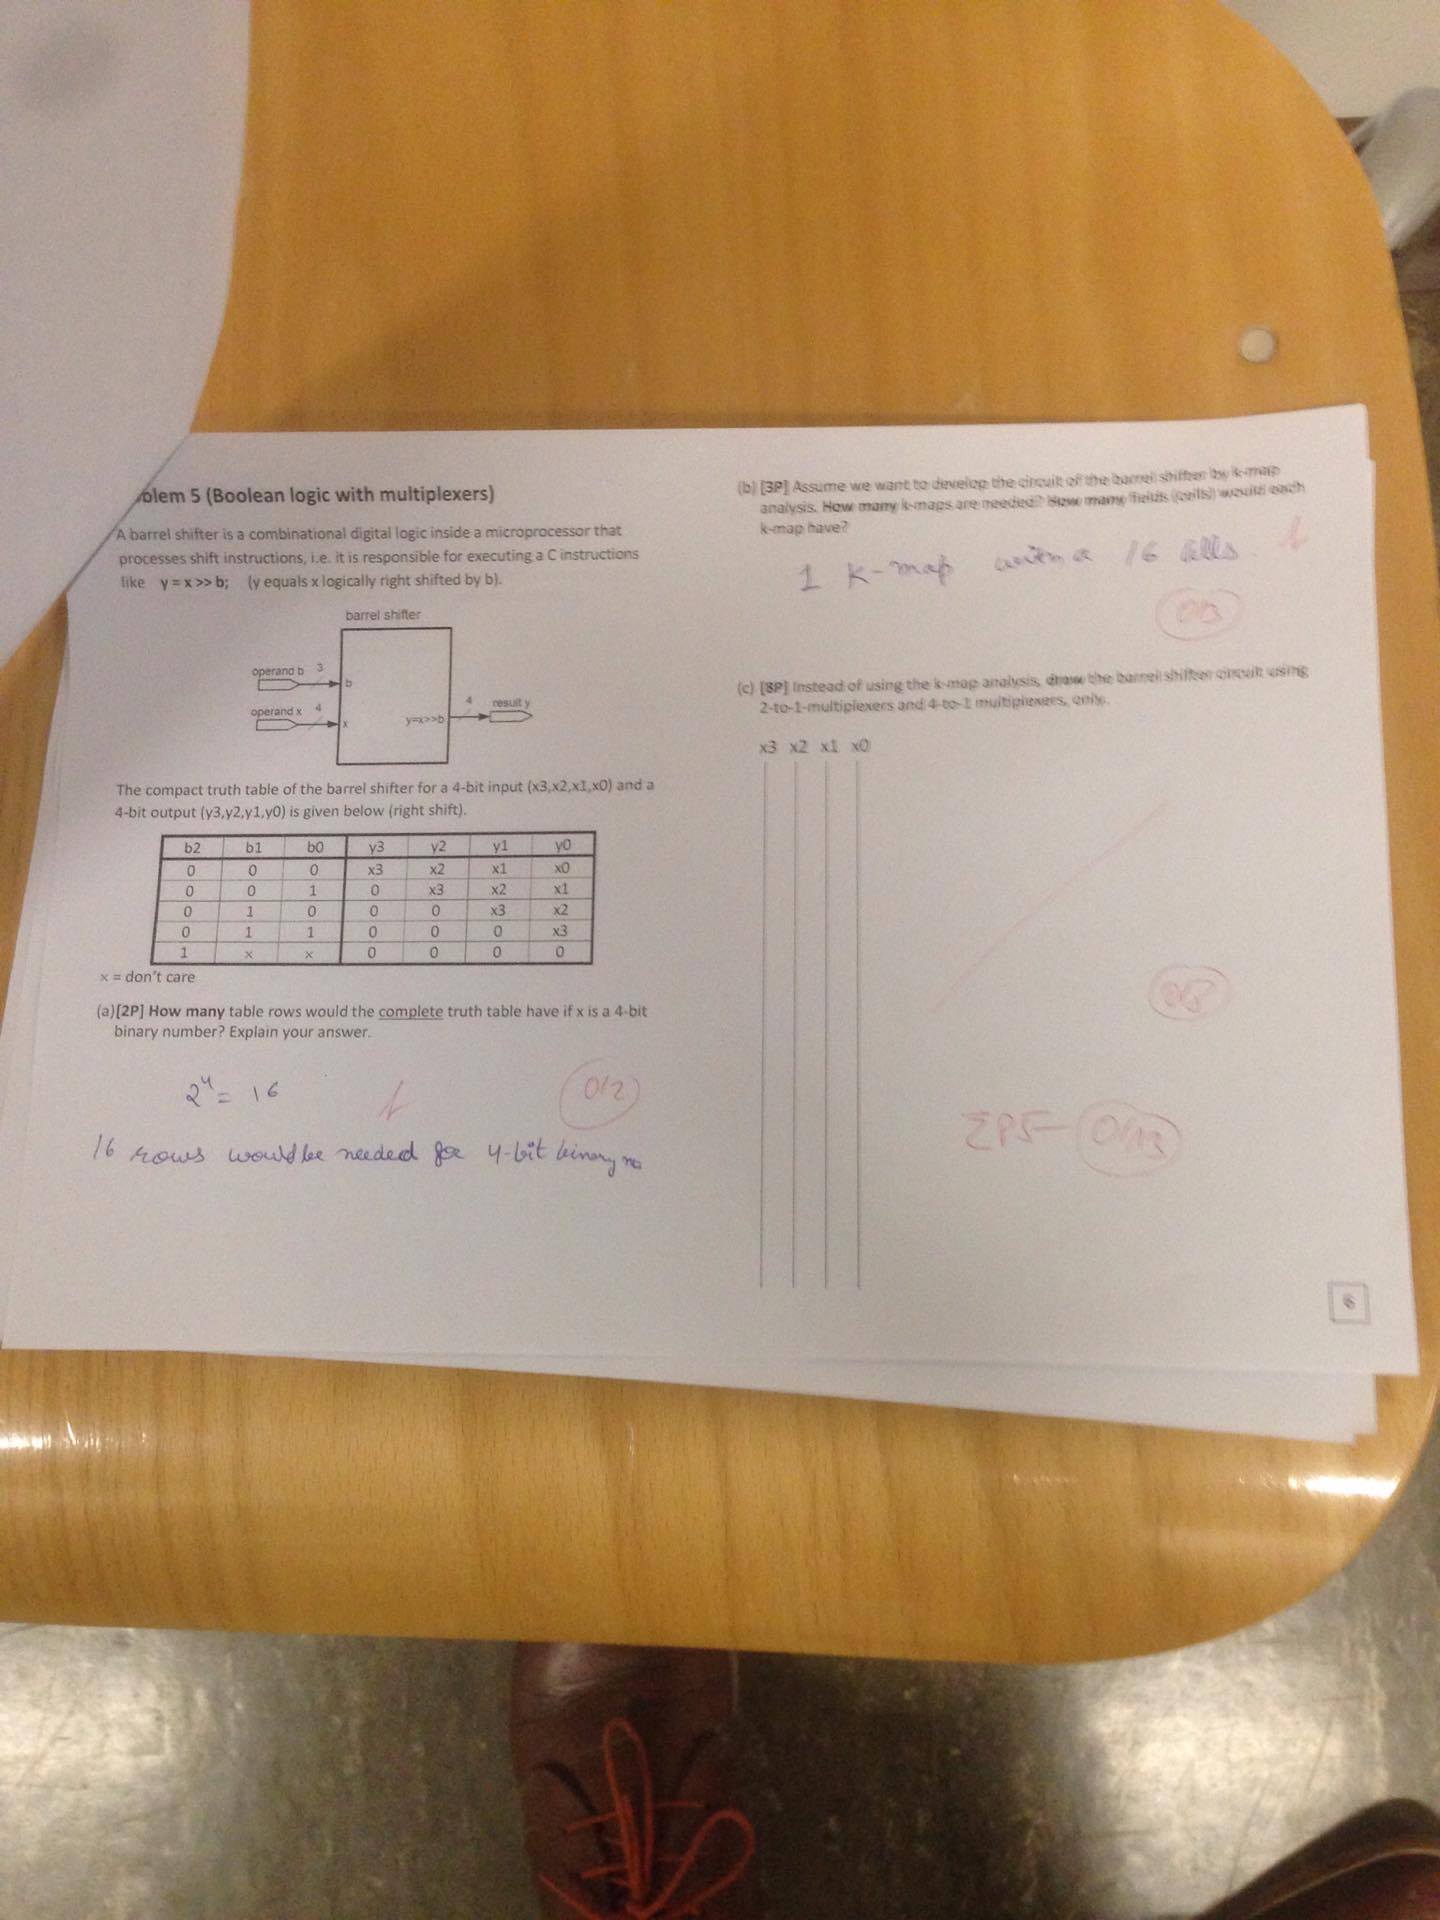 blem 5 (Boolean logic with multiplexers)
A barrel shifter is a combinational digital logic inside a microprocessor that
processes shift instructions, i.e. it is responsible for executing a C instructions
like y = x >> b; (y equals x logically right shifted by b).
barrel shifter
operand b 3
b
operand x 4
x
y=x>>b
4
result y
The compact truth table of the barrel shifter for a 4-bit input (x3,x2,x1,x0) and a
4-bit output (y3,y2,y1,y0) is given below (right shift).
b2 b1 b0 y3 y2 y1 y0
0 0 0 x3 x2 x1 x0
0 0 1 0 x3 x2 x1
0 1 0 0 0 x3 x2
0 1 1 0 0 0 x3
1 x x 0 0 0 0
x = don't care
(a)[2P] How many table rows would the complete truth table have if x is a 4-bit
binary number? Explain your answer.
2⁴ = 16
0/2
16 rows would be needed for 4-bit binary no
(b) [3P] Assume we want to develop the circuit of the barrel shifter by k-map
analysis. How many k-maps are needed? How many fields (cells) would each
k-map have?
1 K-map with a 16 cells
0/3
(c) [8P] Instead of using the k-map analysis, draw the barrel shifter circuit using
2-to-1-multiplexers and 4-to-1 multiplexers, only.
x3 x2 x1 x0
0/8
ΣP5 = 0/13